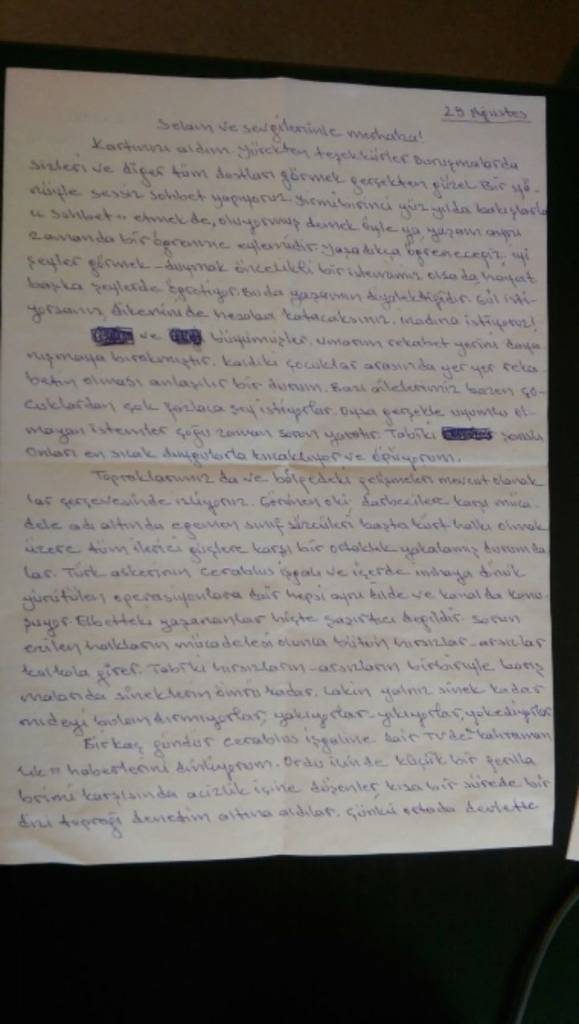 29 Ağustos
Selam ve sevgilerimle merhaba!
Kartınızı aldım. Yürekten teşekkürler. Duruşmalarda
sizleri ve diğer tüm dostları görmek gerçekten güzel. Bir yö-
nüyle sessiz sohbet yapıyoruz. Yirmibirinci yüz yılda bakışlarla
"sohbet" etmek de, oluyormuş demek. Öyle ya yaşam aynı
zamanda bir öğrenme eylemidir. Yaşadıkça öğreneceğiz. İyi
şeyler görmek - duymak öncelikli bir istemimiz olsa da hayat
başka şeyler de öğretiyor. Bu da yaşamın diyalektiğidir. Gül isti-
yorsanız, dikenini de hesaba katacaksınız. İnadına istiyoruz!
ve büyümüşler. Umarım rekabet yerini daya-
nışmaya bırakmıştır. Kaldı ki çocuklar arasında yer yer reka-
betin olması anlaşılır bir durum. Bazı ailelerimiz bazen ço-
cuklardan çok fazlaca şey istiyorlar. Oysa gerçekle uyumlu ol-
mayan istemler çoğu zaman sorun yaratır. Tabiki
Onları en sıcak duygularla kucaklıyor ve öpüyorum.
Topraklarımız da ve bölgedeki gelişmeleri mevcut olanak-
lar çerçevesinde izliyoruz. Görünen o ki darbecilere karşı müca-
dele adı altında egemen sınıf sözcüleri başta kürt halkı olmak
üzere tüm ilerici güçlere karşı bir ortaklık yakalamış durumda-
lar. Türk askerinin Cerablus işgali ve içerde imhaya dönük
yürütülen operasyonlara dair hepsi aynı dilde ve kanalda konu-
şuyor. Elbetteki yaşananlar hiçte şaşırtıcı değildir. Sorun
ezilen halkların mücadelesi olunca bütün hırsızlar - arsızlar
kolkola girer. Tabiki hırsızların - arsızların birbiriyle barış-
maları da sineklerin ömrü kadar. Lakin yalnız sinek kadar
mideyi bulandırmıyorlar, yakıyorlar - yıkıyorlar, yokediyorlar.
Birkaç gündür Cerablus işgaline dair TV'de "kahraman-
lık" haberlerini dinliyorum. Ordu ilinde küçük bir gerilla
birimi karşısında acizlik içine düşenler, kısa bir sürede bir
dizi toprağı denetim altına aldılar. Çünkü ortada devlette